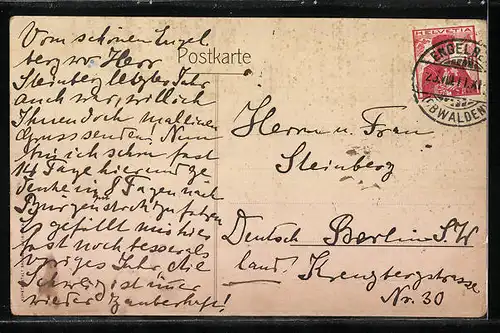 Postkarte
HELVETIA
ENGELBERG
(OBWALDEN)
Vom schönen Engel
berg wo Herr
Steinberg letztes Jahr
auch war, will ich
Ihnen doch mal einen
Gruss senden! Nun
bin ich schon fast
14 Tage hier und ge
denke in 8 Tagen nach
Bürgenstock zu fahren
Es gefällt mir hier
fast noch besser als
voriges Jahr, die
Schweiz ist immer
wieder zauberhaft!
Herrn u. Frau
Steinberg
Deutsch Berlin S.W
land! Kreuzbergstrasse
Nr. 30